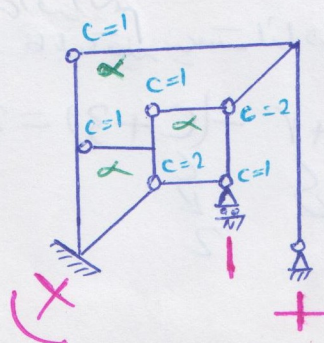 C=1
α
C=1
C=1
α
C=2
α
C=2
C=1